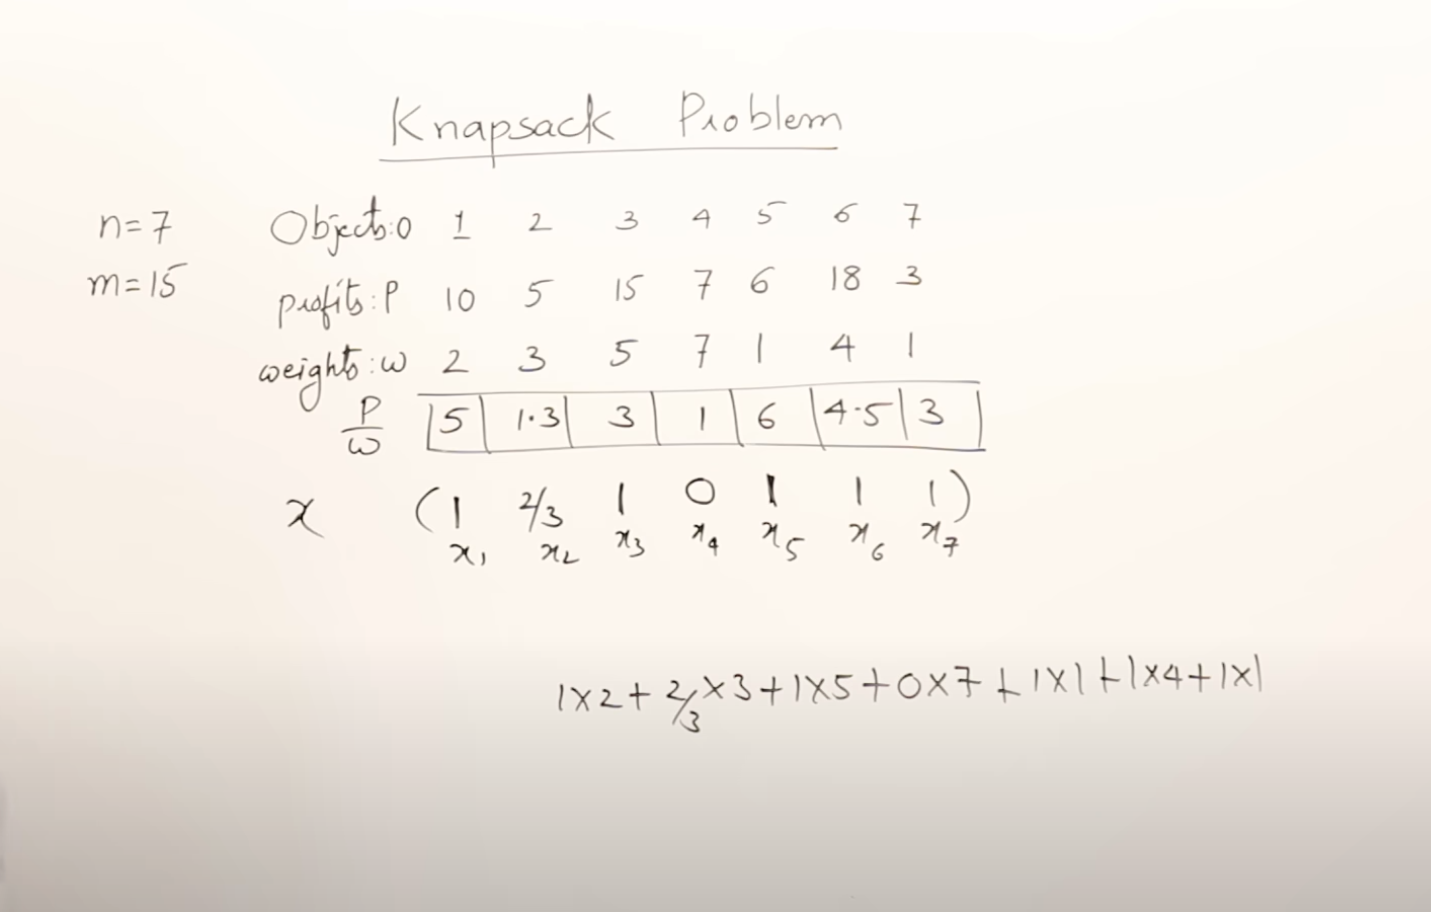 Knapsack Problem
n=7 Objects:O 1 2 3 4 5 6 7
m=15 profits:P 10 5 15 7 6 18 3
weights:w 2 3 5 7 1 4 1
P/w 5 1.3 3 1 6 4.5 3
x (1 2/3 1 0 1 1 1)
x1 x2 x3 x4 x5 x6 x7
1×2+2/3×3+1×5+0×7+1×1+1×4+1×1